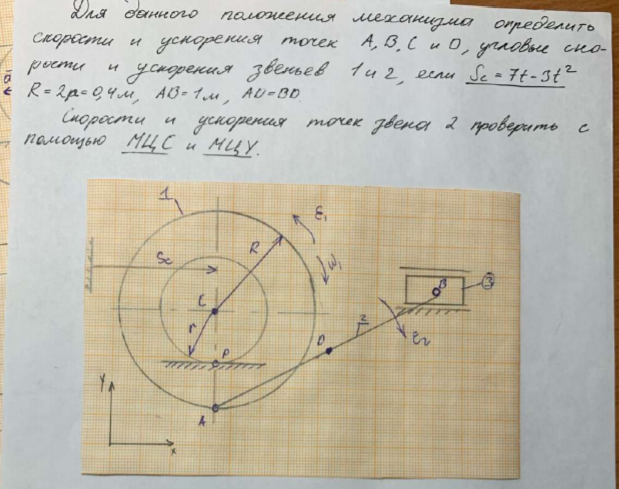 Для данного положения механизма определить
скорости и ускорения точек A, B, C и D, угловые ско-
рости и ускорения звеньев 1 и 2, если Sc = 7t - 3t²
R = 2r = 0,4м, AB = 1м, AD = BD.
Скорости и ускорения точек звена 2 проверить с
помощью МЦС и МЦУ.
1
ε₁
R
Sc
ω₁
C
B
3
r
2
D
P
ε₂
Y
A
x